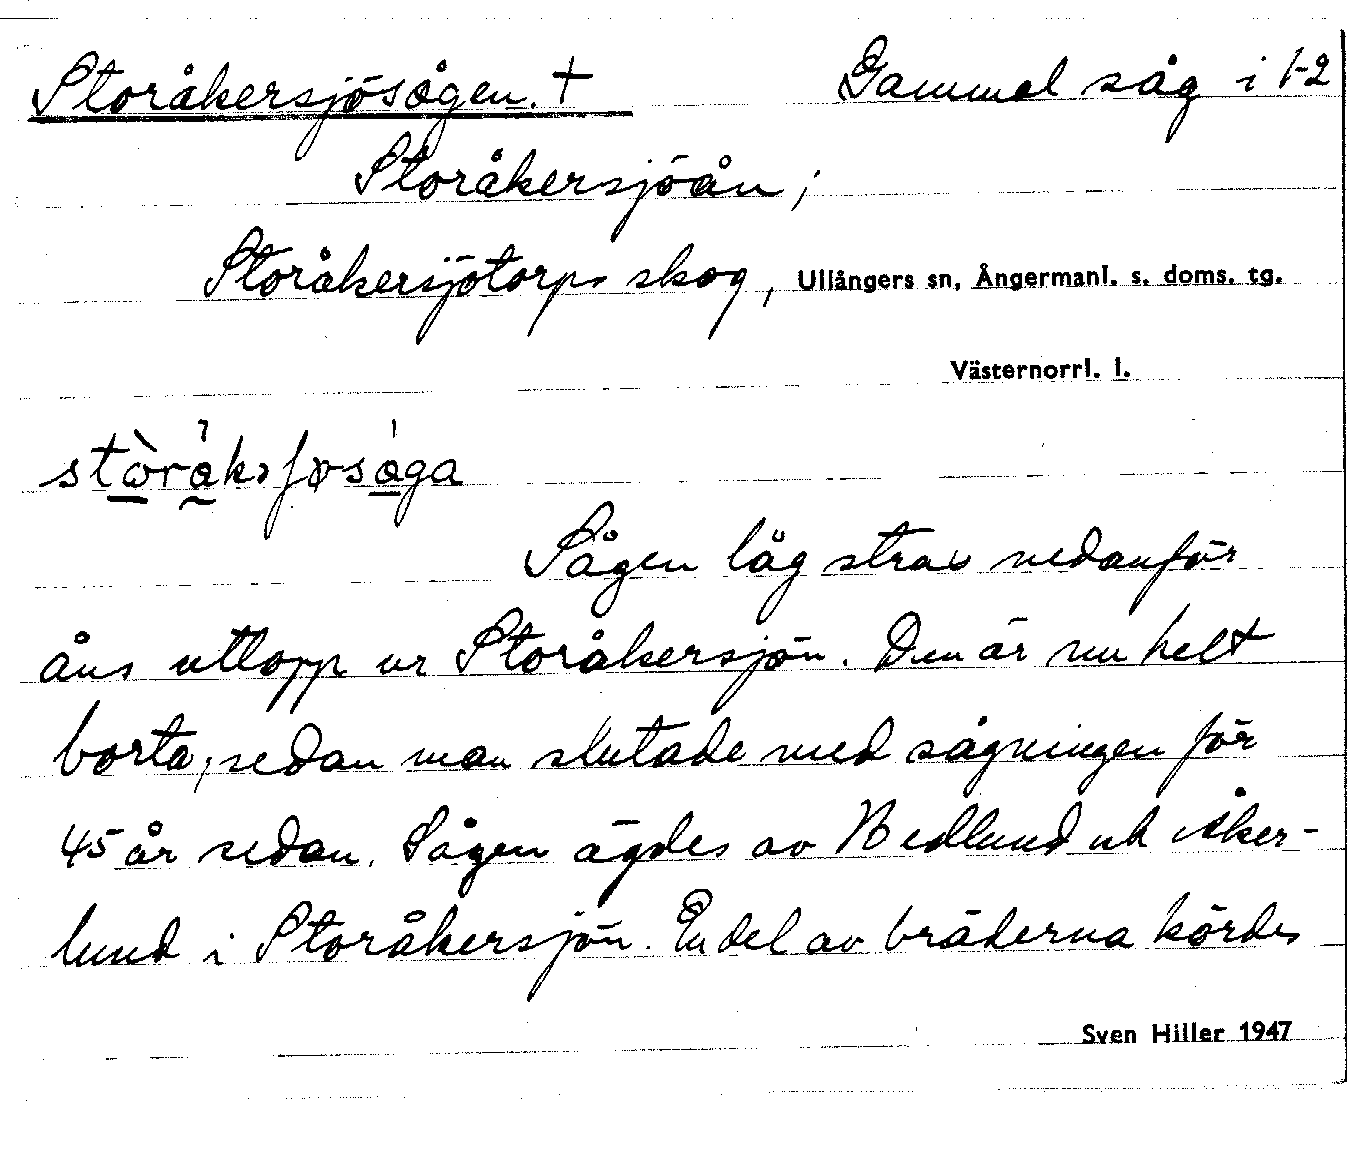 Storåkersjösågen. + Gammal såg i 1-2
Storåkersjöån,
Storåkersjötorps skog, Ullångers sn, Ångermanl. s. doms. tg.
Västernorrl. l.
Sågen låg strax nedanför
åns utlopp ur Storåkersjön. Den är nu helt
borta, sedan man slutade med sågningen för
45 år sedan. Sågen ägdes av Nedlund och Åker-
lund i Storåkersjön. En del av bräderna kördes
Sven Hiller 1947